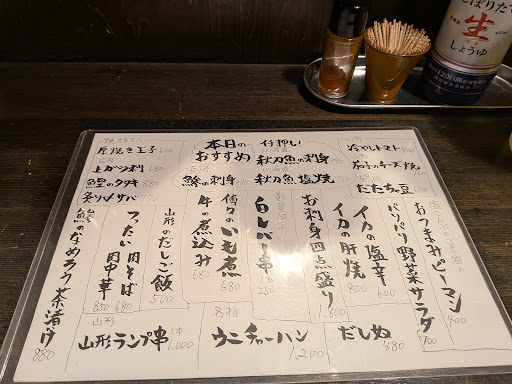 しぼりたて
生
しょうゆ
本日の
おすすめ
一押し
北海道
秋刀魚の刺身
秋刀魚塩焼
鯵の刺身 680
厚焼き玉子 600
上ガツ刺 680
鰹のタタキ 880
炙り〆サバ 770
山形
冷やしトマト 400
茄子のチーズ焼
だだちゃ豆 550
おつまみピーマン 400
パリパリ野菜サラダ 700
イカの塩辛 600
イカの肝焼 800
お刺身四点盛り 1,800
数量限定
白レバー串
1本 250
傳々のいも煮 680
牛の煮込み 680
山形のだしご飯 500
冷たい肉そば 680
肉中華 850
鯵のなめろう茶漬け 880
山形
山形ランプ串 1本 1,000
名物
ウニチャーハン 1,200
だしぬ 480